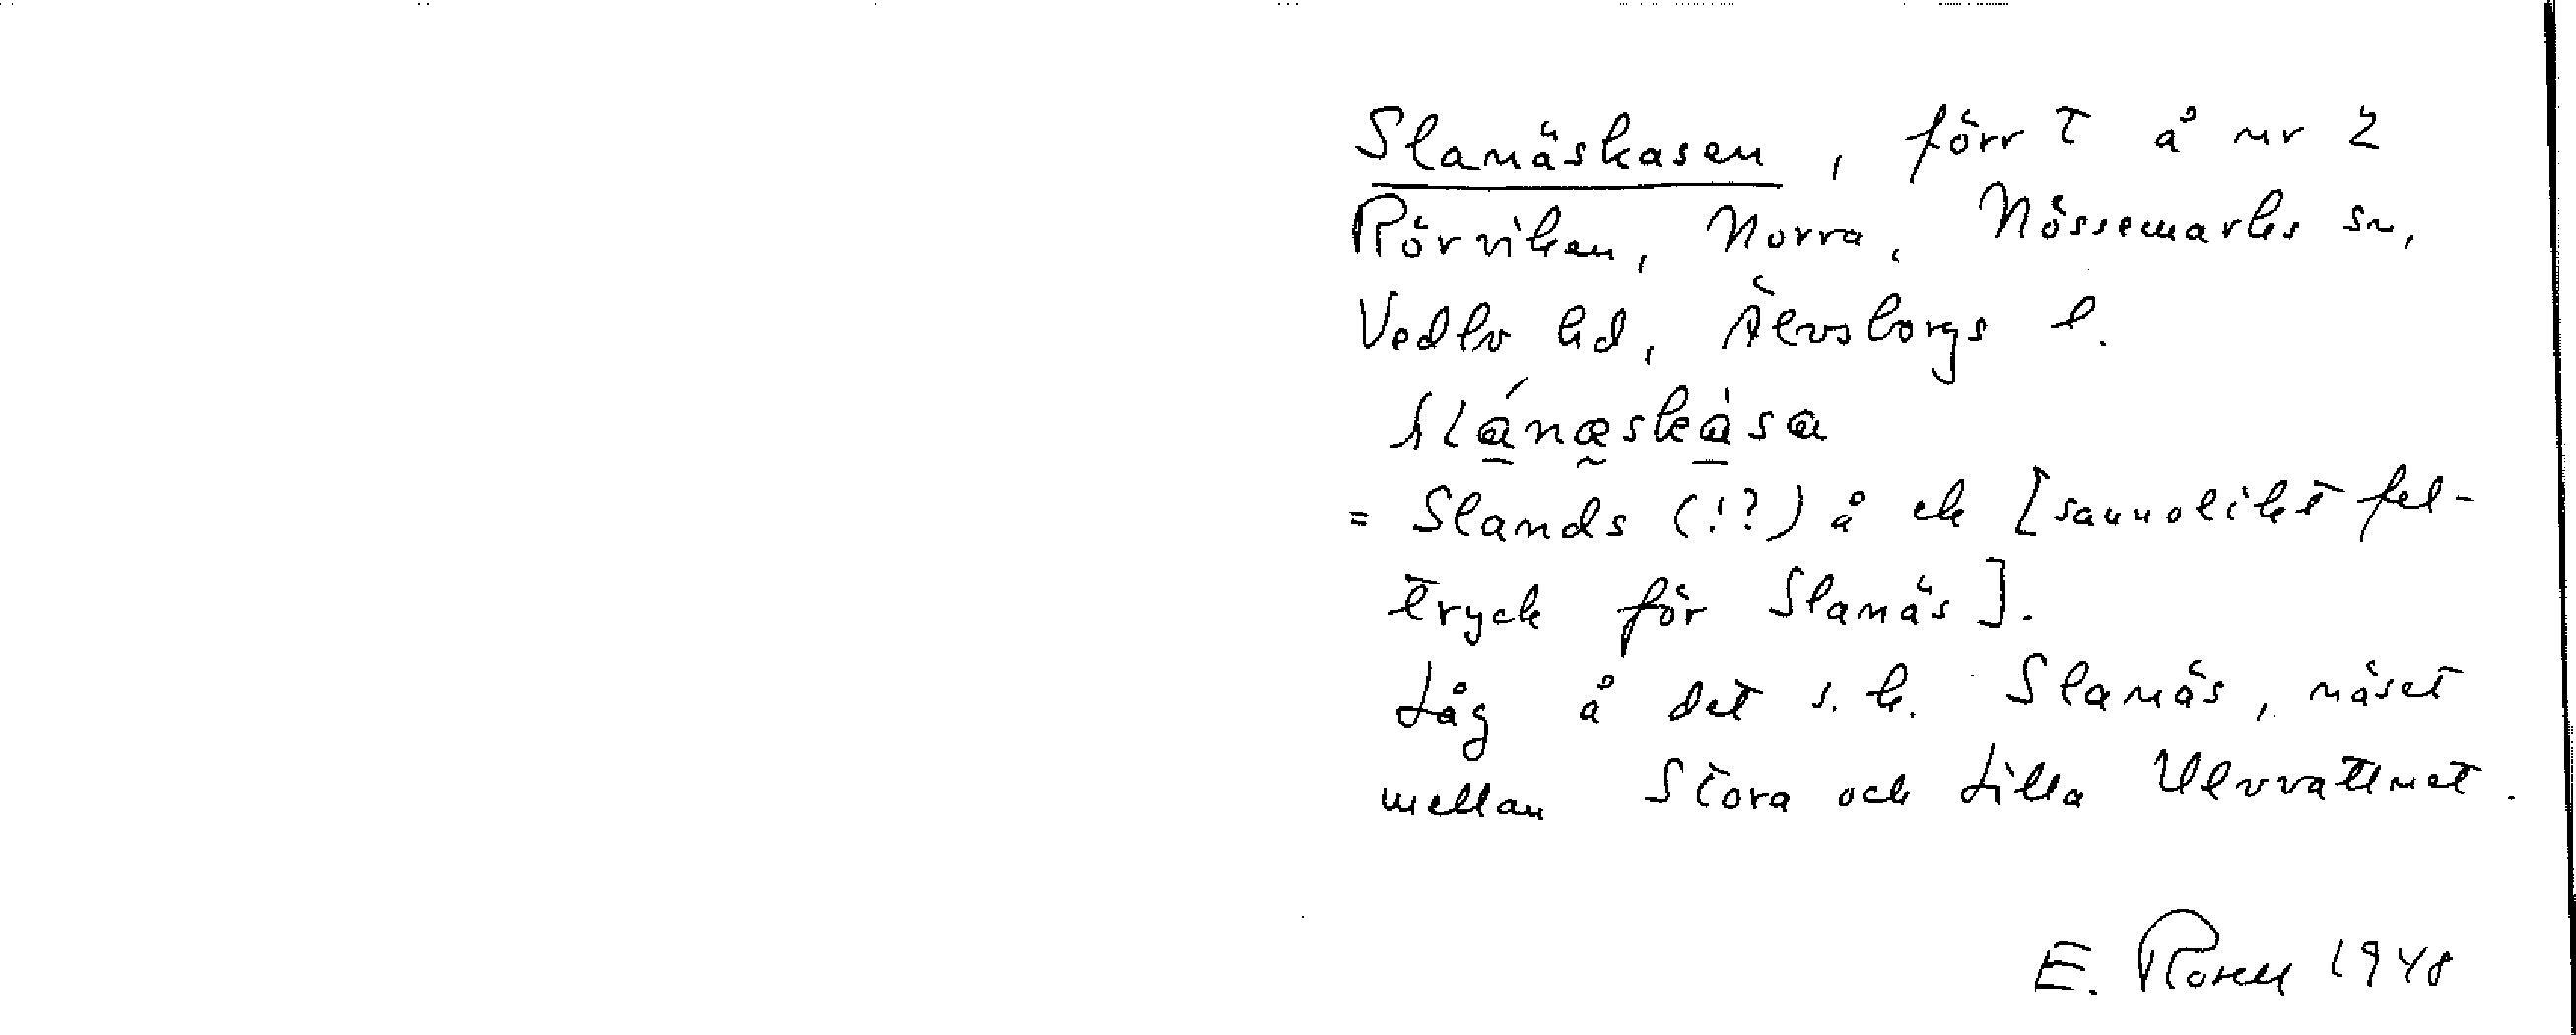 Slanäskasen, förr T å nr 2
Rörviken, Norra, Nössemarks sn,
Vedbo hd, Älvsborgs l.
slánæskàsa
= Slands (!?) å ek [sannolikt fel-
tryck för Slanäs].
Låg å det s.k. Slanäs, näset
mellan Stora och Lilla Ulvvattnet.
E. Rosell 1948